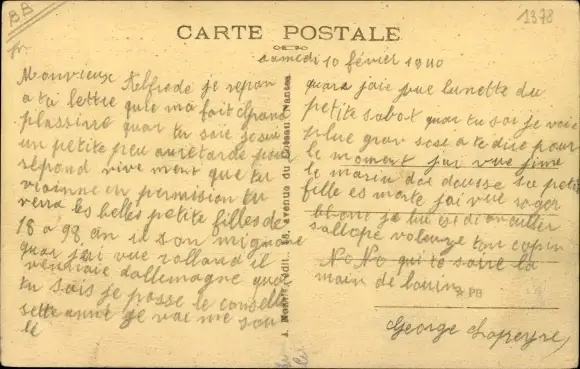 BB
1378
CARTE POSTALE
samedi 10 février 1940
Monvieux Alfrede je repon
a ta lettre quie ma fait grand
plassire quar tu saie je suie
un petite peu auretarde pour
repond vive ment que tu
vienne en permission tu
vera les belles petite filles de
18 a 98 an il son mignone
quar jai vue rolland il
venaie dallemagne quar
tu sais je passe le conselle
sette anné je vai me sou
le
quar jaie pue lunette du
petite sabot quar tu sai je voie
plue grav sose a te dire pour
le moment jai vue fine
le marin dai dousse sa petite
fille es morte jai vue roger
blanc je lui est di enculler
sallope volouze ton copin
No No qui te saire la
main de louin
PB
George Lapeyre
J. Nozais, édit., 18, avenue du Coteau, Nantes